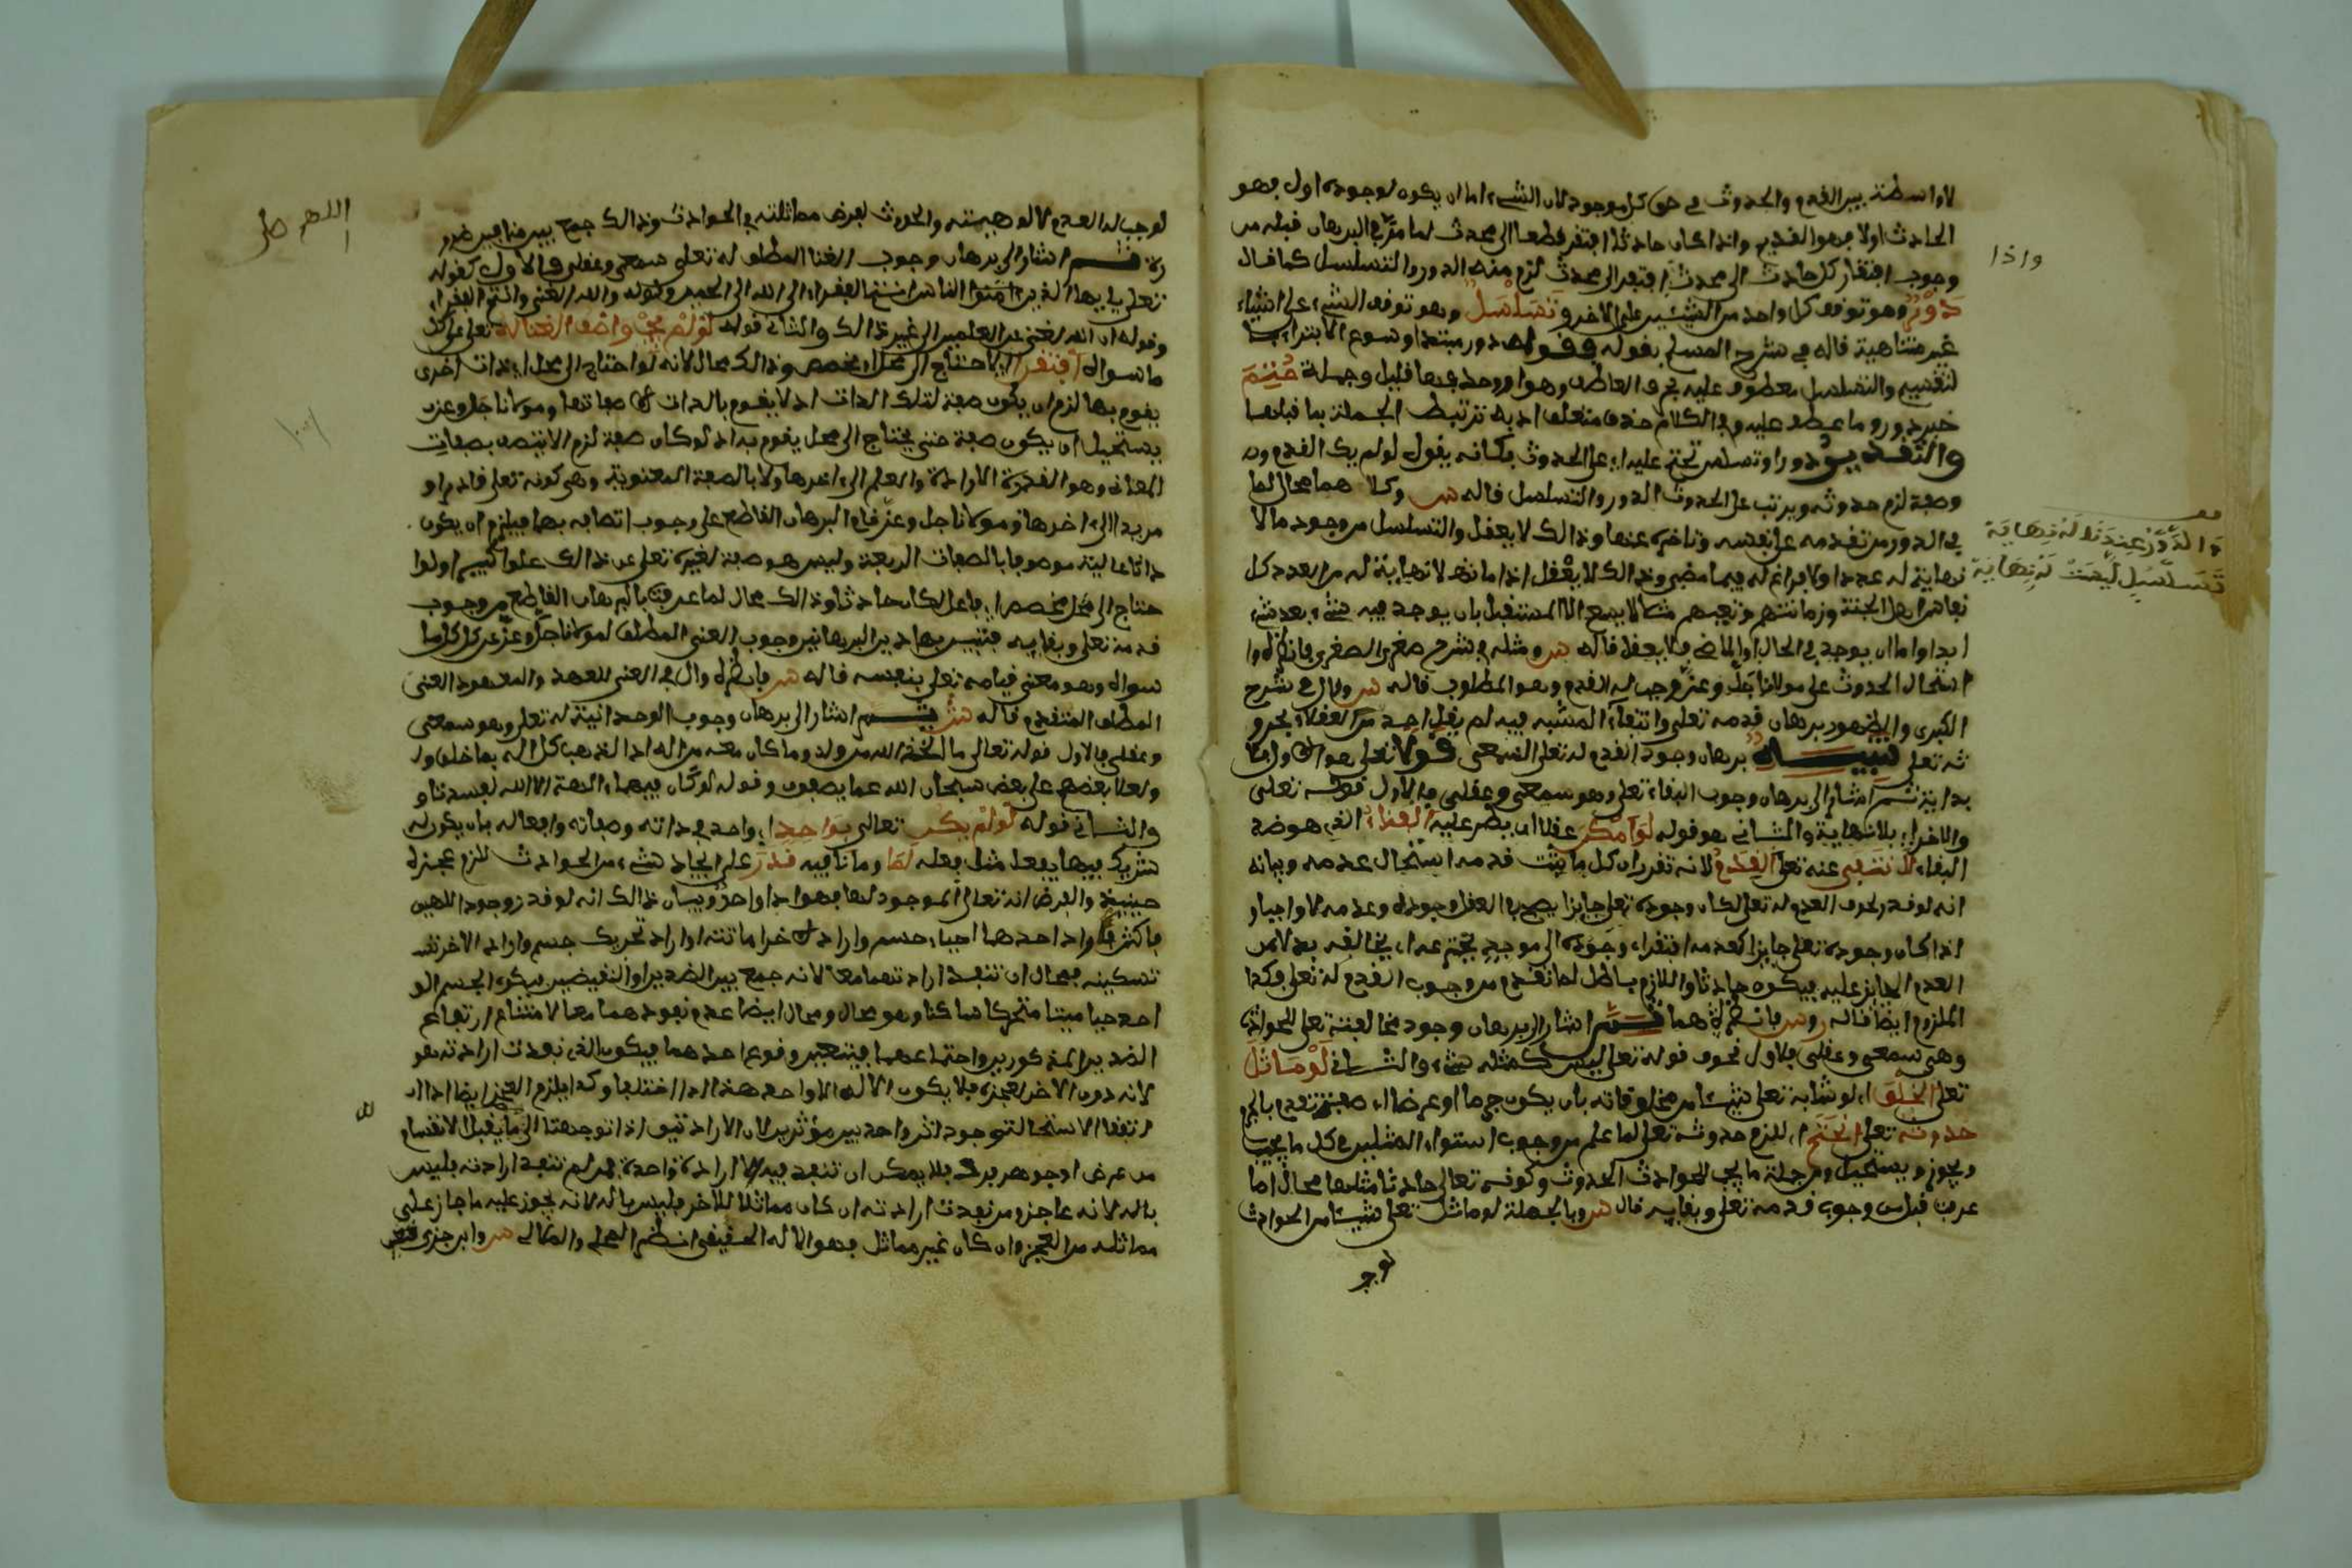 لا واسطة بين القدم والحدوث في حق كل موجود لان الشيء اما ان يكون لوجوده اول فهو
الحادث اولا فهو القديم واذا كان حادثا افتقر قطعا الى محدث لما مر في البرهان قبله من
وجوب افتقار كل حادث الى محدث افتقر الى محدث لزم منه الدور والتسلسل كما قال
دور وهو توقف كل واحد من الشيئين على الاخر وتسلسل وهو توقف الشيء على اشياء
غير متناهية قاله في شرح المسلم بقوله فقوله دور مبتدا وسوغ الابتداء
لتقسيم والتسلسل معطوف عليه بحرف العاطف وهو او وحذفها قليل وجملة حتم
خبر دور وما عطف عليه وفي الكلام حذف متعلق اذ به ترتبط الجملة بما قبلها
والتقدير دور او تسلسل حتم عليه اي على الحدوث فكانه يقول لو لم يك القدم
وصفه لزم حدوثه ويرتب على الحدوث الدور والتسلسل قاله س وكلا هما محال لما
في الدور من تقدمه على نفسه وتاخره عنها وذالك لا يعقل والتسلسل من وجود ما لا
نهاية له عددا ولا فراغ له فيما مضى وذالك لا يعقل اذا ما لا نهاية له من العدد كل
اهل الجنة وازمنتهم ونعيمهم مثلا لا يسع الا المستقبل بان يوجد فيه شيء بعد شيء
ابدا واما ان يوجد في الحال او الماضي فلا يعقل قاله س ومثله في شرح صغرى الصغرى فانظره
استحال الحدوث على مولانا جل وعز وجب له القدم وهو المطلوب قاله س وقال في شرح
الكبرى ولظهور برهان قدمه تعلى وانتفاء المشبه فيه لم يقل احد من العقلاء بحدو
ثه تعلى تنبيه برهان وجود القدم له تعلى السمعي قوله تعلى هو الاول اي بلا
بداية ثم اشار الى برهان وجوب البقاء تعلى وهو سمعي وعقلي فالاول قوله تعلى
والاخر اي بلا نهاية والثاني هو قوله لو امكن عقلا ان يطرا عليه الفناء الذي هو ضد
البقاء لانتفى عنه تعلى القدم لانه تقرر ان كل ما ثبت قدمه استحال عدمه وبيانه
انه لو قدر لحوق العدم له تعلى لكان وجوده تعلى جايزا يصح في العقل وجوده وعدمه لا واجبا و
اذا كان وجوده تعلى جايزا كعدمه افتقر اي وجوده الى موجد حتم عدا يخالفه بدلا من
العدم الجايز عليه فيكون حادثا واللازم باطل لما تقدم من وجوب القدم له تعلى فكذا
الملزوم ايضا قاله و س فانظر هما ثم اشار الى برهان وجود مخالفته تعلى للحوادث
وهي سمعي وعقلي فالاول نحو قوله تعلى ليس كمثله شيء والثاني لو ماثل
تعلى الخلق اي لو شابه تعلى شيئا من مخلوقاته بان يكون جرما او عرضا اي صفة تقوم بالجرم
حدوثه تعلى انحتم اي للزم حدوثه تعلى لما علم من وجوب استواء المثلين في كل ما يجب
ويجوز ويستحيل ومن جملة ما يجب للحوادث الحدوث وكونه تعالى حادثا مثلها محال لما
عرفت قبل من وجوب قدمه تعلى وبقايه قال س وبالجملة لو ماثل تعلى شيئا من الحوادث
لوجـ
واذا
والدور عندنا له نهاية
تسلسل ليست له نهاية
لوجب له القدم لالوهيته والحدوث لفرض مماثلته في الحوادث وذالك جمع بين متنافيين ضرو
رة ثم اشار الى برهان وجوب الغنا المطلق له تعلى سمعي وعقلي فالاول كقوله
تعلى يايها الناس انتم الفقراء الى الله الى الحميد وقوله والله الغني وانتم الفقراء
وقوله ان الله لغني عن العلمين الى غير ذالك والثاني قوله لو لم يجب وصف الغنا له تعلى عن كل
ما سواه افتقر اي لاحتاج الى محل او مخصص وذالك محال لانه لو احتاج الى محل اي ذات اخرى
يقوم بها لزم ان يكون صفة لتلك الذات اذ لا يقوم بالذات الا صفاتها ومولانا جل وعز
يستحيل ان يكون صفة حتى يحتاج الى محل يقوم به اذ لو كان صفة لزم الا يتصف بصفات
المعاني وهو القدرة الارادة والعلم الى اخرها ولا بالصفة المعنوية وهي كونه تعلى قادرا و
مريدا الى اخرها ومولانا جل وعز قام البرهان القاطع على وجوب اتصافه بهما فيلزم ان يكون
ذاتا عالية موصوفا بالصفات الرفيعة وليس هو صفة لغيره تعلى عن ذالك علوا كبيرا ولو ا
حتاج الى مخصص اي فاعل لكان حادثا وذالك محال لما عرفت بالبرهان القاطع من وجوب
قدمه تعلى وبقايه فتبين بهاذين البرهانين وجوب الغنى المطلق لمولانا جل وعز عن كل ما
سواه وهو معنى قيامه تعلى بنفسه قاله س فانظره وال في الغنى للعهد والمعهود الغنى
المطلق المتقدم قاله ش ثم اشار الى برهان وجوب الوحدانية له تعلى وهو سمعي
وعقلي فالاول قوله تعالى ما اتخذ الله من ولد وما كان معه من اله اذا لذهب كل اله بما خلق ولـ
ولعلا بعضهم على بعض سبحان الله عما يصفون وقوله لو كان فيهما ءالهة الا الله لفسدتا و
والثاني قوله لو لم يكن تعالى بواحد اي واحد في ذاته وصفاته وافعاله بان يكون له
شريك فيها يفعل مثل فعله لما وما نافيه قدر على ايجاد شيء من الحوادث للزم عجزه
حينيذ والفرض انه تعالى الموجد لها فهو اذا واحد وبيان ذالك انه لو قدر وجود الاهين
فاكثر واراد احدهما احياء جسم واراد الاخر اماتته او اراد تحريك جسم واراد الاخر
تسكينه فمحال ان تنفذ ارادتهما معا لانه جمع بين الضدين او النقيضين فيكون الجسم الو
احد حيا ميتا متحركا ساكنا وهو محال ومحال ايضا عدم نفوذهما معا لامتناع ارتفاع
الضدين المذكورين واجتماعهما فيتعين وقوع احدهما فيكون الذي نفذت ارادته هو
الاله دون الاخر لعجزه فلا يكون الاله الا واحد هذا اذا اختلفا وكذا يلزم العجز ايضا اذا
اتفقا لاستحالة وجود اثر واحد بين مؤثرين لان الارادتين اذا توجهتا الى ما يقبل الانقسام
من عرض او جوهر فرد فلا يمكن ان تنفذ فيه الا ارادة واحدة فمن لم تنفذ ارادته فليس
باله لانه عاجز ومن نفذت ارادته ان كان مماثلا للاخر فليس باله لانه يجوز عليه ما جاز على
مماثله من العجز وان كان غير مماثل فهو الاله الحقيقي انظر المحلي والثعالبي س وابن جزي
اللهم صل